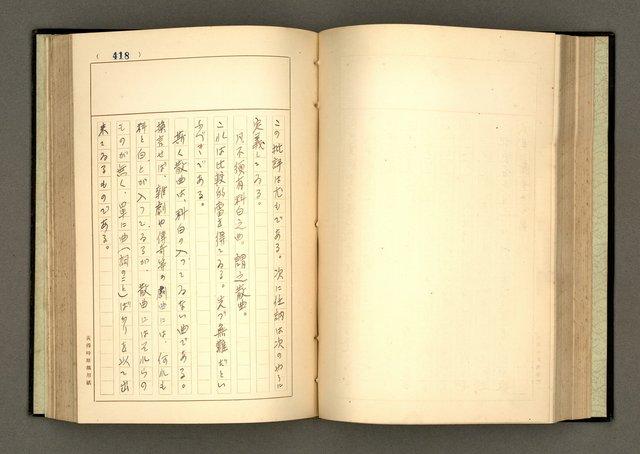 (418)
この批評は尤もである。次に任訥は次のやうに
定義してゐる。
凡不須有科白之曲。謂之散曲。
これは比較的當を得てゐる。先づ無難だとい
ふべきである。
斯く散曲は、科白の入つてゐない曲である。
換言せば、雜劇や傳奇等の劇曲には、何れも
科と白とが入つてゐるが、散曲にはそれらの
ものが無く、單に曲(詞のこと)ばかりを以て出
來てゐるものである。
黃得時原稿用紙